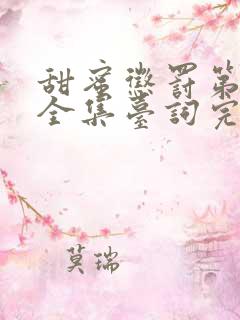 甜蜜懲罰第
全集臺詞完
莫瑞